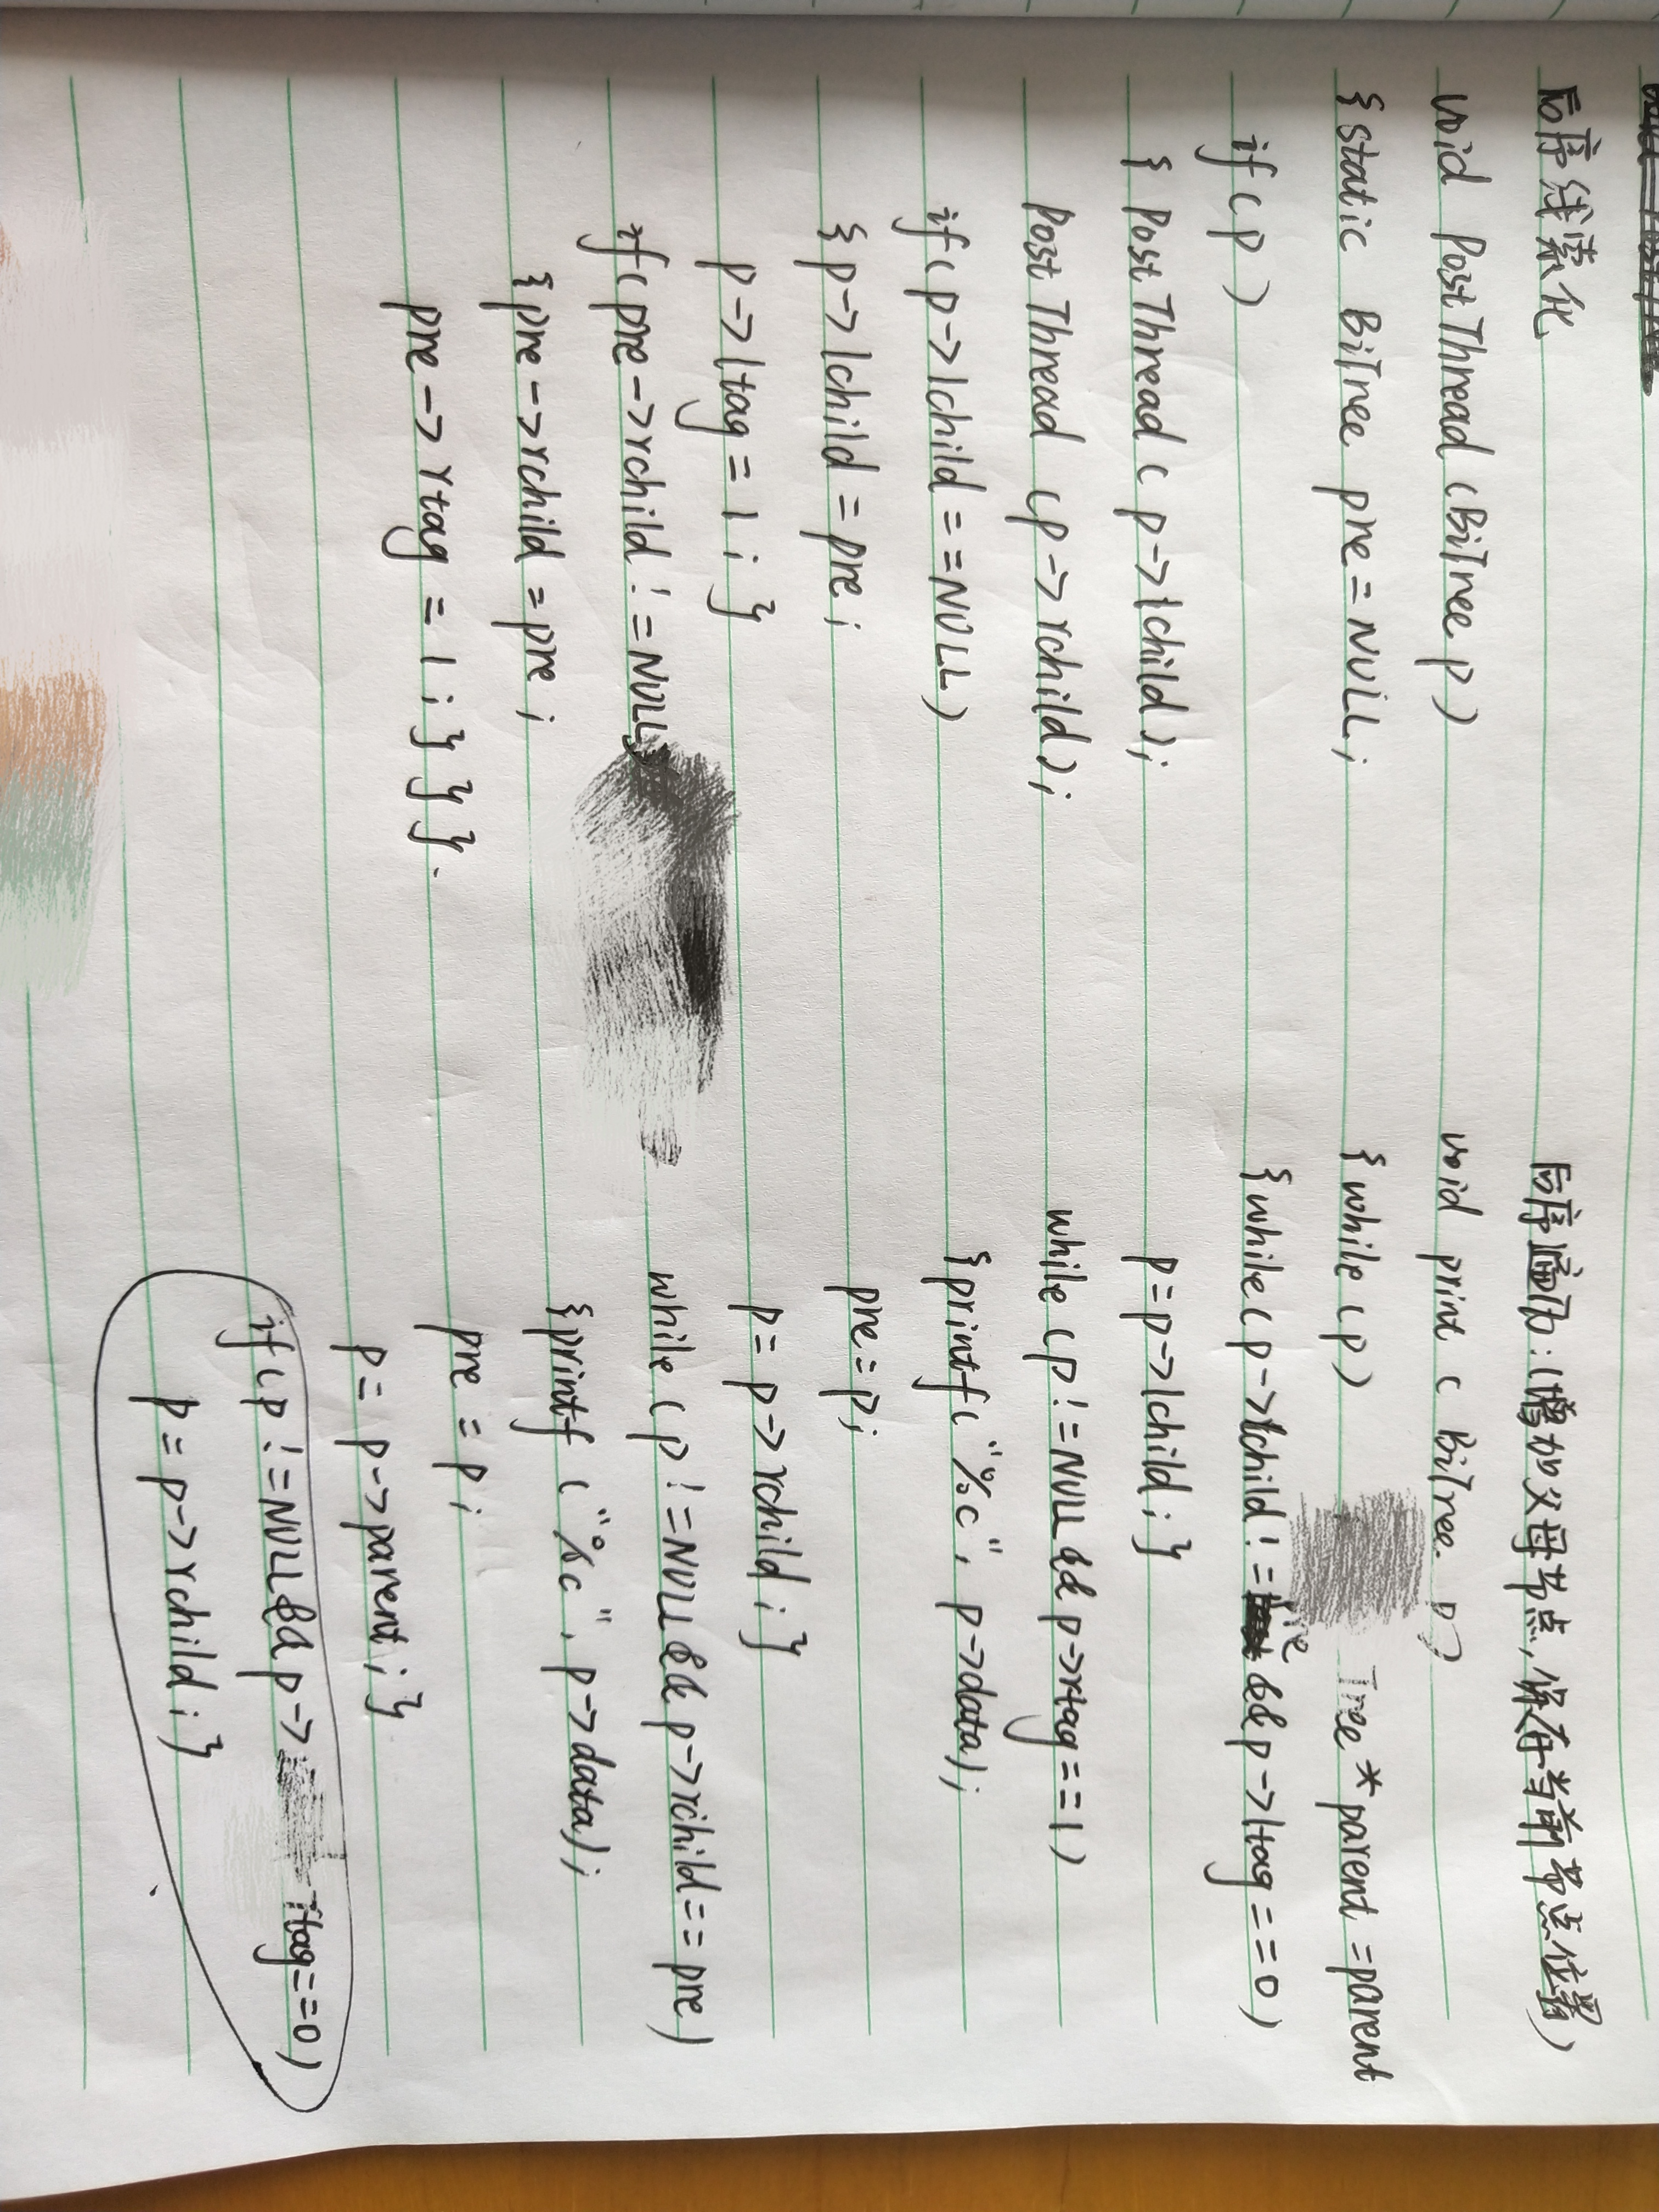 后序线索化
void PostThread (BiTree p)
{static BiTree pre=NULL;
if(p)
{ PostThread ( p->lchild);
PostThread (p->rchild);
if(p->lchild==NULL)
{p->lchild=pre;
p->ltag=1;}
if(pre->rchild!=NULL)
{pre->rchild=pre;
pre->rtag=1;}}}.
后序遍历:(增加父母节点,保存当前节点位置)
void print ( BiTree p)
{while(p) Tree *parent=parent
{while(p->lchild!=pre&&p->ltag==0)
p=p->lchild;}
while(p!=NULL&&p->rtag==1)
{printf("%c",p->data);
pre=p;
p=p->rchild;}
while(p!=NULL&&p->rchild==pre)
{printf("%c",p->data);
pre=p;
p=p->parent;}
if(p!=NULL&&p-> rtag==0)
p=p->rchild;}